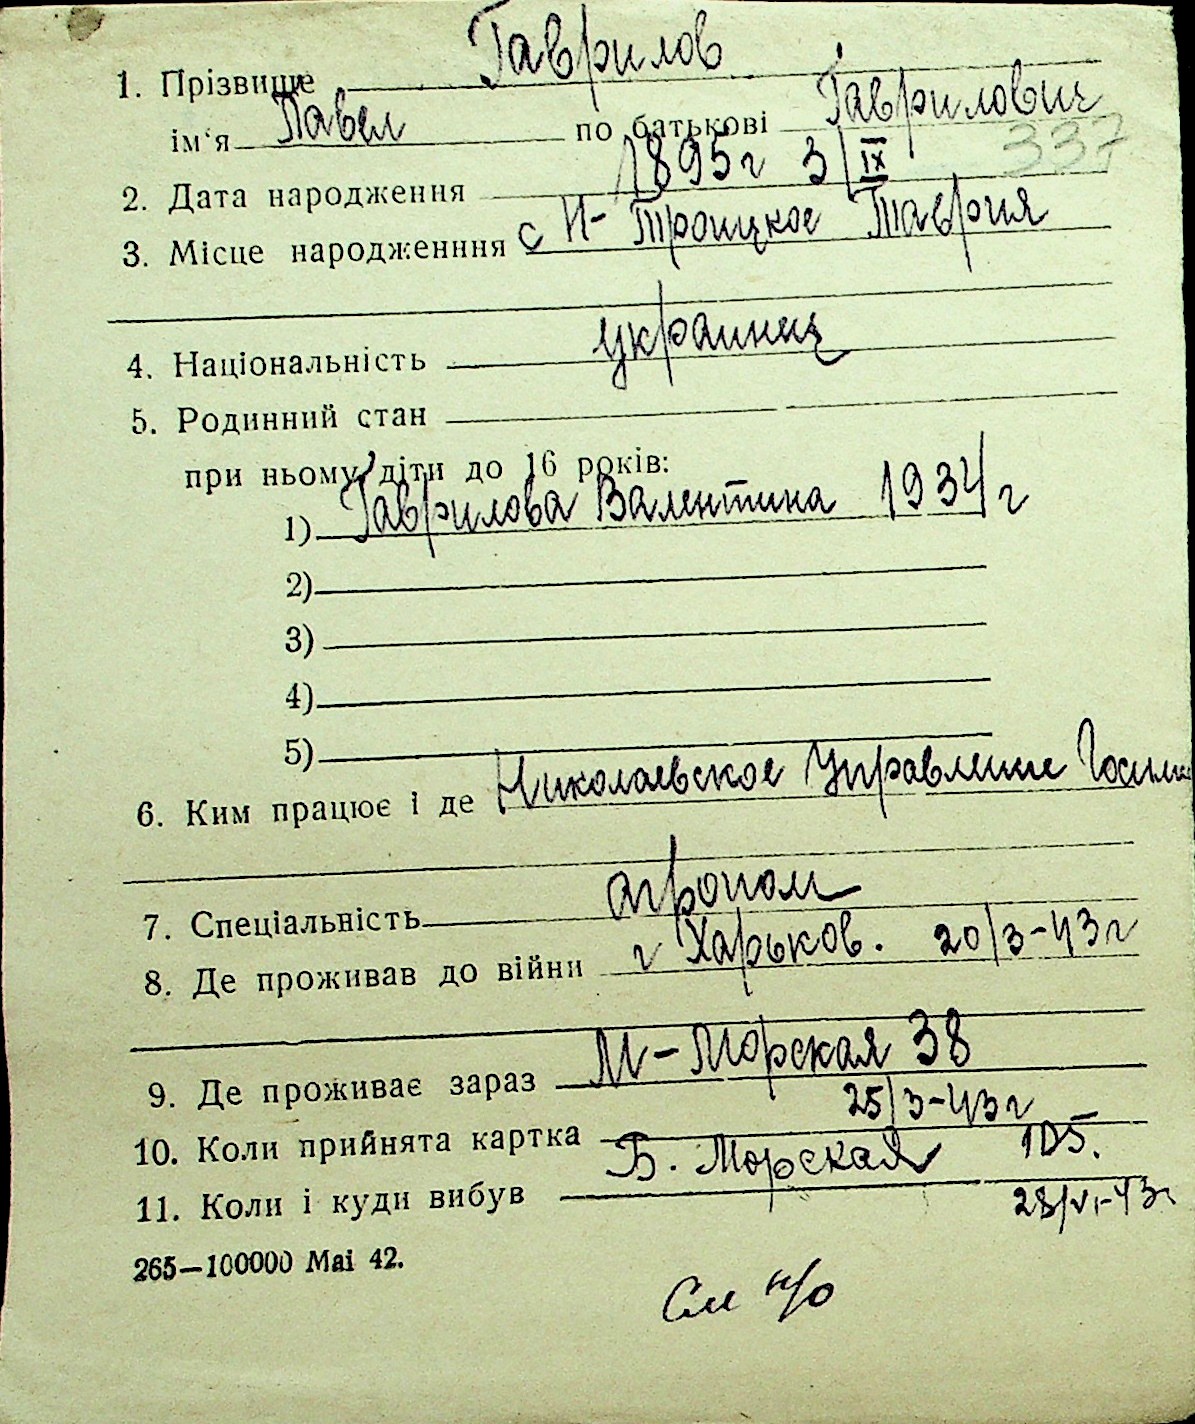 1. Прізвище Гаврилов
ім'я Павел по батькові Гаврилович
337
2. Дата народження 1895г 3/IX
3. Місце народженння с Н-Троицкое Таврия
4. Національність украинец
5. Родинний стан
при ньому діти до 16 років:
1) Гаврилова Валентина 1934 г
2)
3)
4)
5)
6. Ким працює і де Николаевское Управление
7. Спеціальність агроном
8. Де проживав до війни г Харьков. 20/3-43г
9. Де проживає зараз М-Морская 38
10. Коли прийнята картка 25/3-43г
11. Коли і куди вибув Б. Морская 105.
28/VI-43г
265—100000 Mai 42.
См н/о